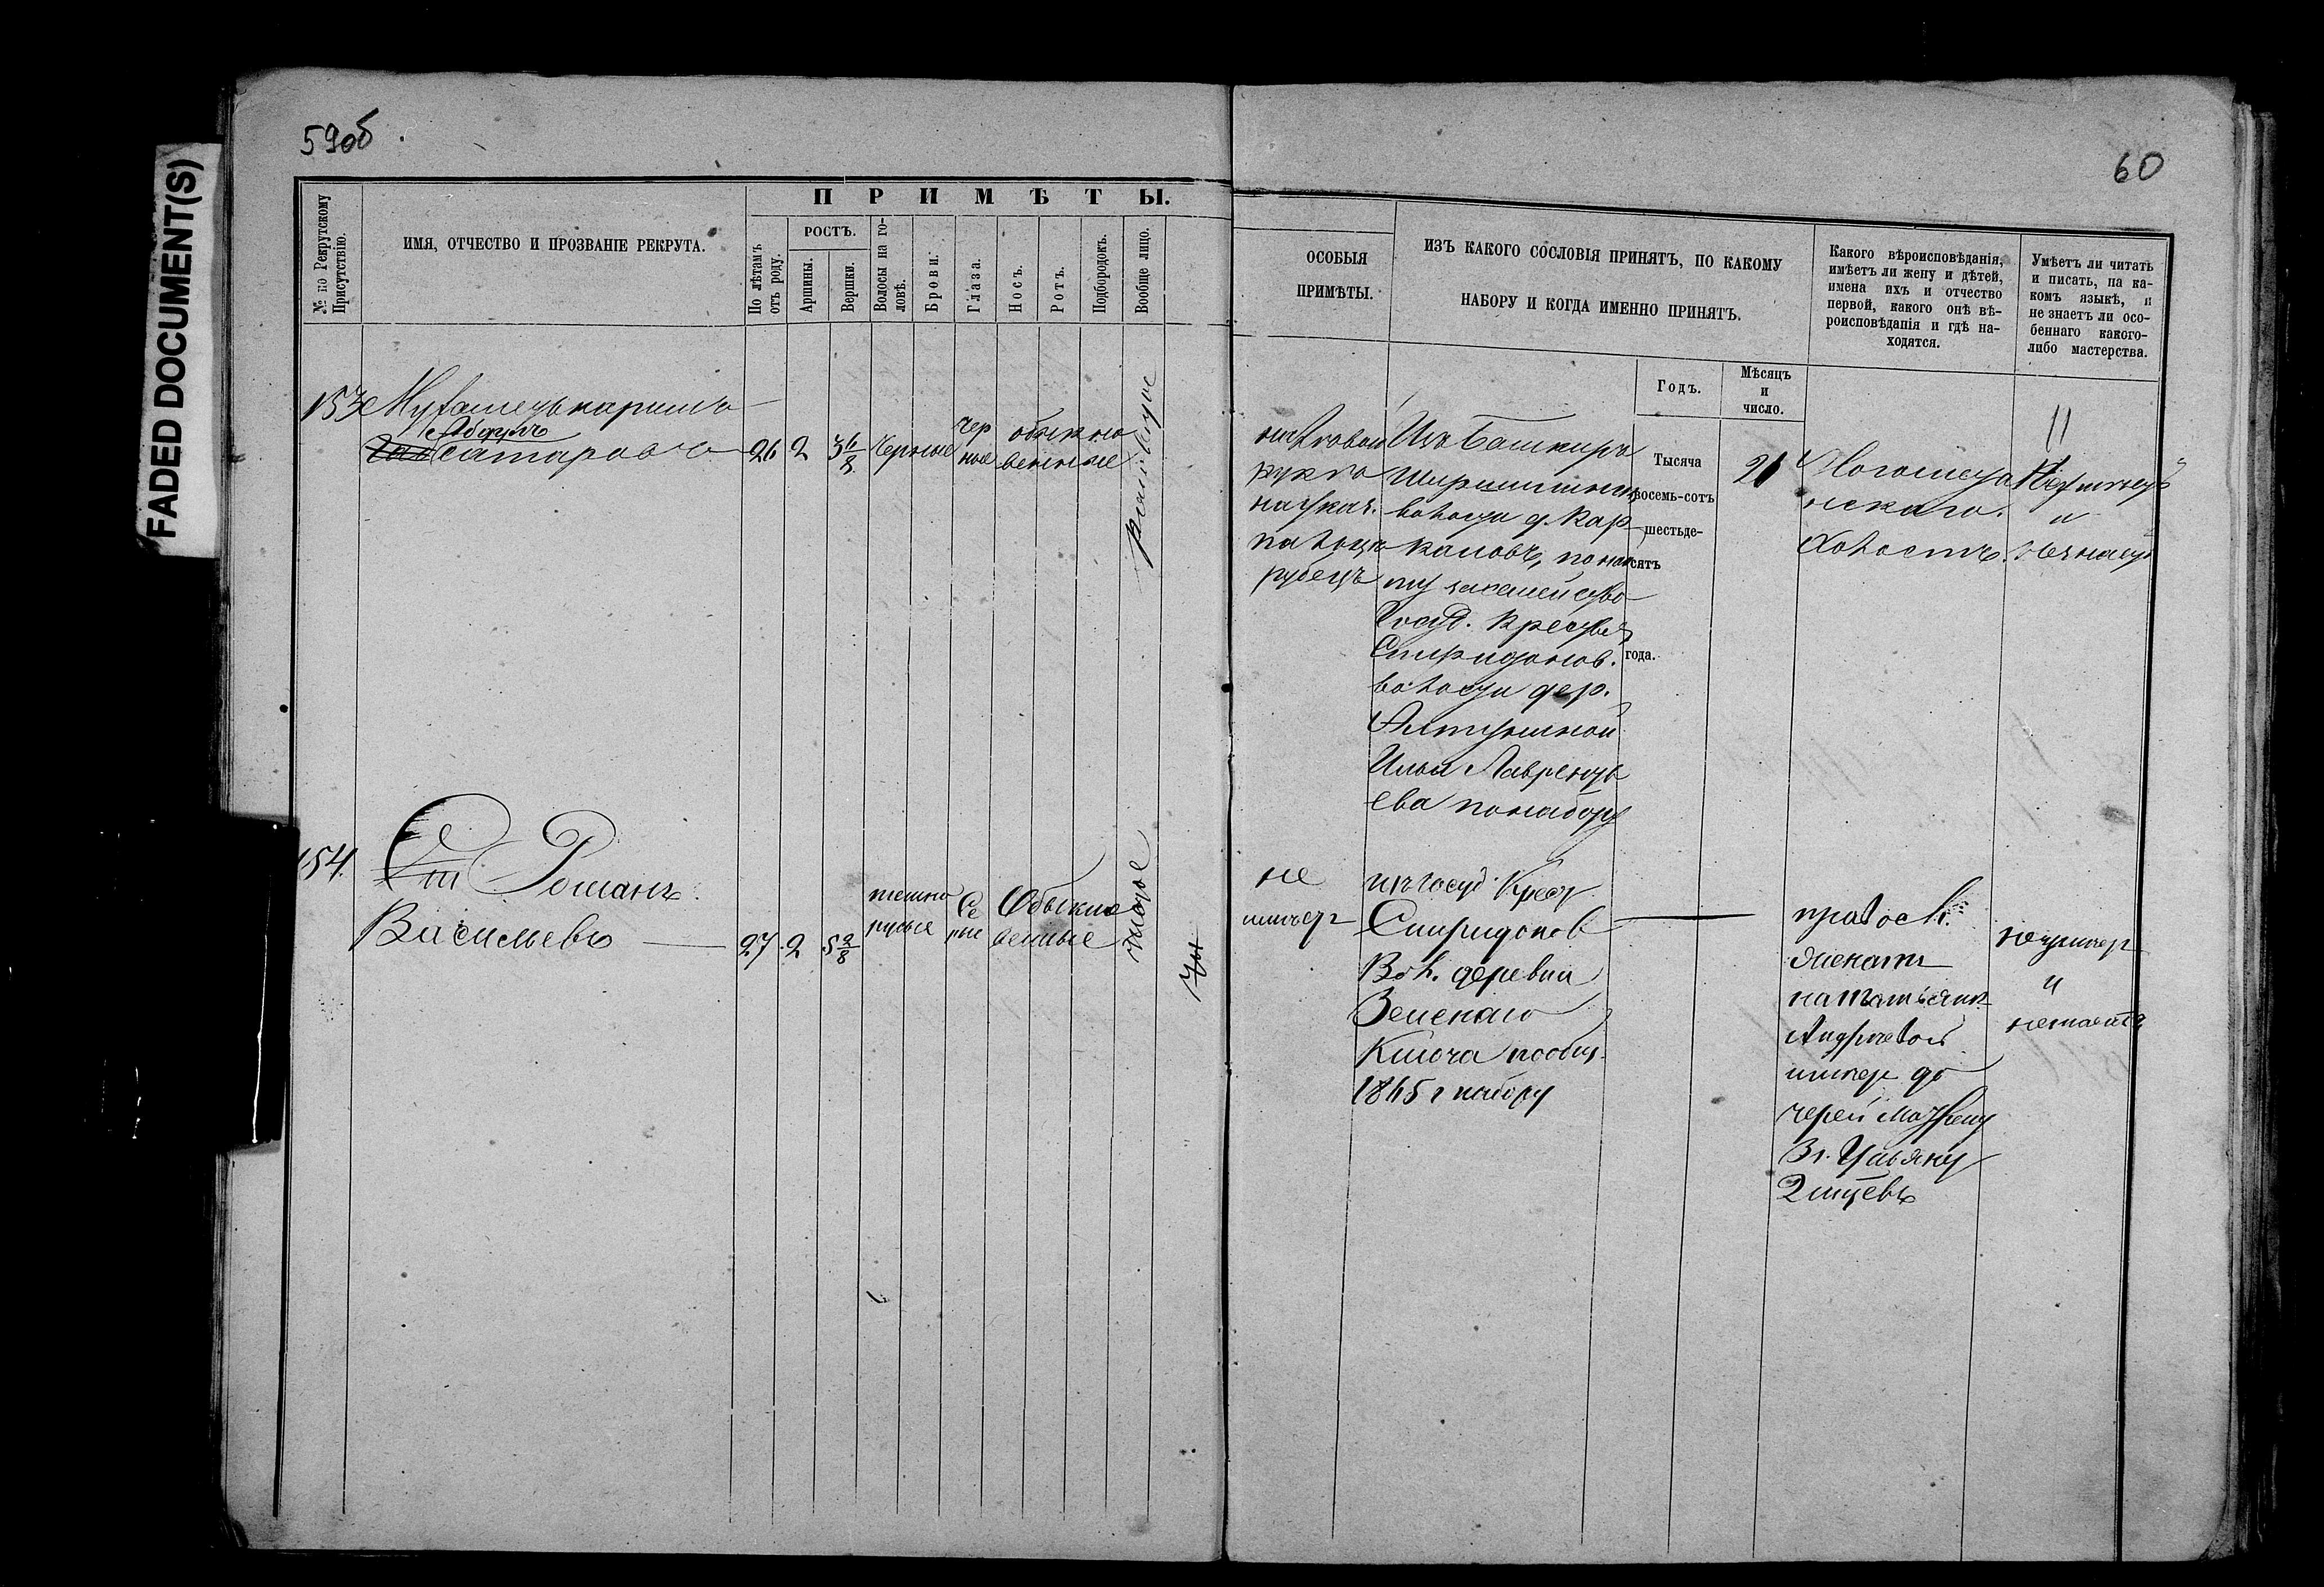 FADED DOCUMENT(S)
59об.
60
ПРИМѢТЫ.
№ по Рекрутскому
Присутствію.
ИМЯ, ОТЧЕСТВО И ПРОЗВАНІЕ РЕКРУТА.
По лѣтамъ
отъ роду.
РОСТЪ.
Аршины.
Вершки.
Волосы на го-
ловѣ.
Брови.
Глаза.
Носъ.
Ротъ.
Подбородокъ.
Вообще лицо.
ОСОБЫЯ
ПРИМѢТЫ.
ИЗЪ КАКОГО СОСЛОВІЯ ПРИНЯТЪ, ПО КАКОМУ
НАБОРУ И КОГДА ИМЕННО ПРИНЯТЪ.
Годъ.
Мѣсяцъ
и
число.
Какого вѣроисповѣданія,
имѣетъ ли жену и дѣтей,
имена ихъ и отчество
первой, какого онѣ вѣ-
роисповѣданія и гдѣ на-
ходятся.
Умѣетъ ли читать
и писать, на ка-
комъ языкѣ, и
не знаетъ ли осо-
беннаго какого-
либо мастерства.
153
Абдулъ
Сатаровъ
26 2 3 6/8
Черные
чер
ные
обыкно
венные
на
рукѣ
на указ.
пальцѣ
рубецъ
Изъ Башкиръ
волости д. Кар
калов, по най
му за семейство
Госуд. Крестья
Спиридонов.
волости дер.
Ильи Лавренть
ева по набору
Тысяча
восемь-сотъ
шестьде-
сятъ
года.
21
Магомета
нскаго.
Холостъ.
и
154.
Романъ
Васильевъ
27. 2 5 2/8
темно
русые
Се
рые
Обыкно
венные
чистое
не
имѣетъ
изъ госуд. Крест
Спиридонов
Вол. деревни
Земскаго
Ключа по общ.
1865 г набору
правосл.
женатъ
на Татьянѣ
Андреевой
имѣет до
черей Матрену
3 г. Ульяну
2 мѣсцевъ
не умѣетъ
и
не знаетъ